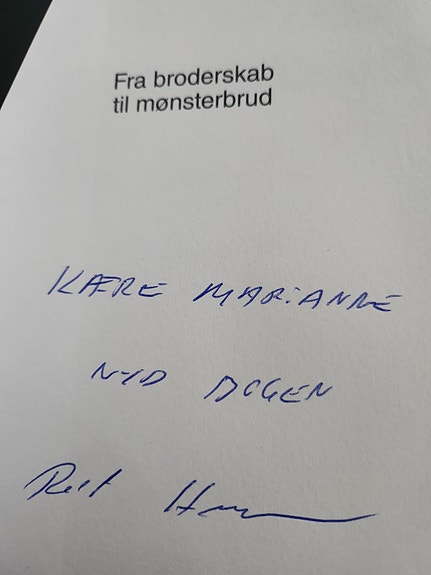 Fra broderskab
til mønsterbrud
KÆRE MARIANNE
NYD BOGEN